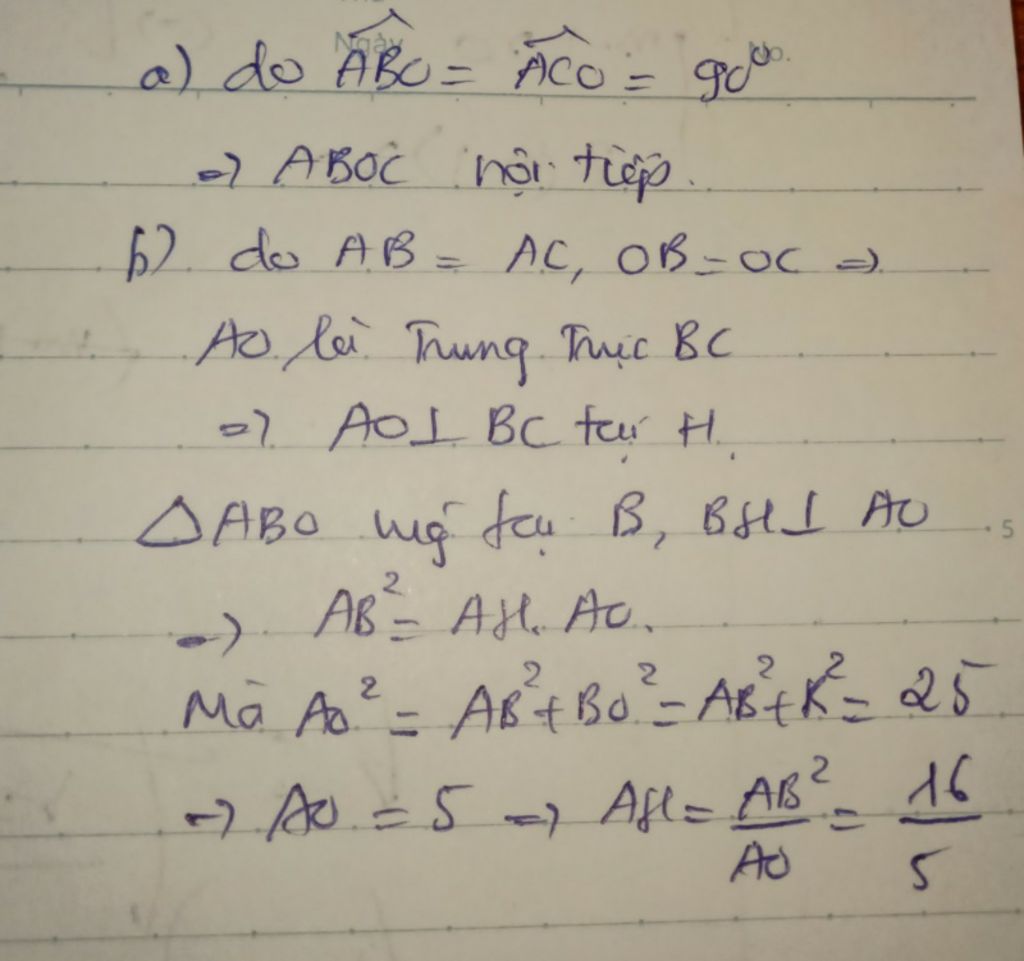 Ngày
No.
a) do ABO = ACO = 90°
=> ABOC nội tiếp.
b) do AB = AC, OB = OC =>
AO là Trung Trực BC
=> AO ⊥ BC tại H.
△ABO vuông tại B, BH ⊥ AO
5
=> AB² = AH. AO.
Mà AO² = AB² + BO² = AB² + R² = 25
=> AO = 5 => AH = AB²/AO = 16/5